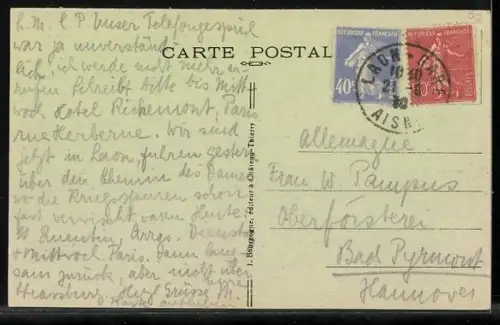 L. M. L. P. Unser Telefongespräch
war ja unverständ-
lich, ich werde nicht mehr an-
rufen. Schreibt bitte bis Mitt-
woch Hotel Richemont, Paris
rue Herberne. Wir sind
jetzt in Laon, fuhren gestern
über den Chemin des Dames
wo die Kriegsspuren schon
fast verwischt waren. Heute
St Quentin, Arras. Dienstag
+ Mittwoch Paris. Dann lang-
sam zurück, aber nicht über
Strassburg. Herzl Grüsse M.
CARTE POSTALE
J. Bourgogne, éditeur à Château-Thierry
RÉPUBLIQUE FRANÇAISE
40c
POSTES
LAON - GARE
21 - 9
30
AISNE
Allemagne
Frau W Pampus
Oberförsterei
Bad Pyrmont
Hannover